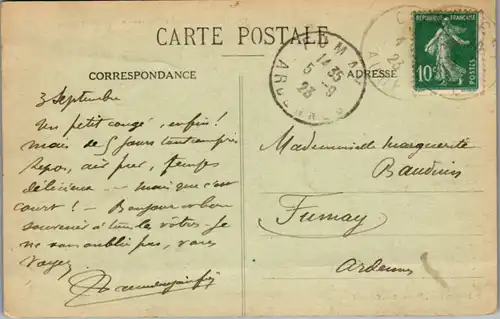 CARTE POSTALE
CORRESPONDANCE
ADRESSE
RÉPUBLIQUE FRANÇAISE
10c
POSTES
FUMAY
14 35
5 - 9
23
ARDENNES
3 Septembre
Un petit congé, enfin!
mais de 5 jours
Repos, air pur, temps
délicieux -- mais que c'est
court! - Bonjour et bon
souvenir à tous les vôtres. Je
ne vous oublie pas, vous
voyez
Mademoiselle Marguerite
Baudoin
Fumay
Ardennes